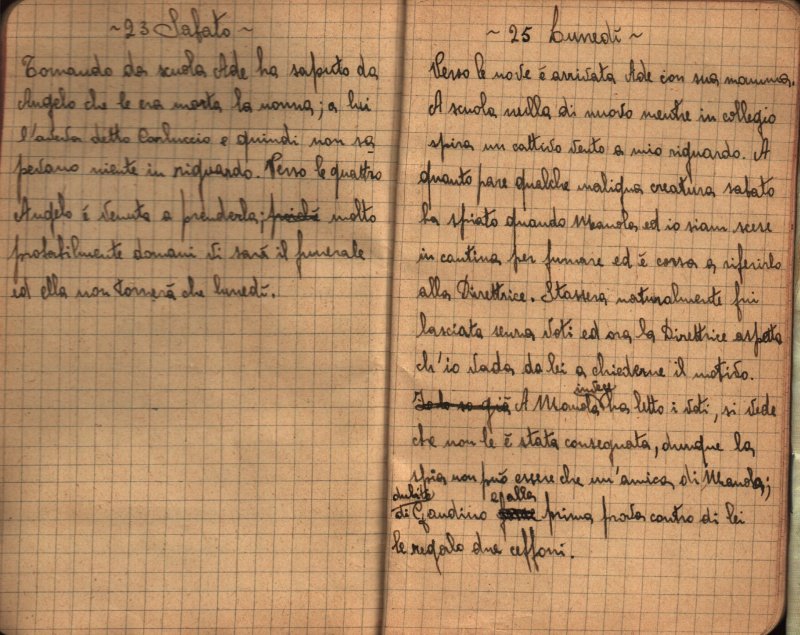 ~ 23 Sabato ~
Tornando da scuola Ade ha saputo da
Angelo che le era morta la nonna; a lui
l'aveva detto Carluccio e quindi non sa
pevano niente in riguardo. Verso le quattro
Angelo è venuto a prenderla; poichè molto
probabilmente domani vi sarà il funerale
ed ella non tornerà che lunedì.
~ 25 Lunedì ~
Verso le nove è arrivata Ade con sua mamma.
A scuola nulla di nuovo mentre in collegio
spira un cattivo vento a mio riguardo. A
quanto pare qualche maligna creatura sabato
ha spiato quando Manola ed io siam scese
in cantina per fumare ed è corsa a riferirlo
alla Direttrice. Stassera naturalmente fui
lasciata senza voti ed ora la Direttrice aspetta
ch'io vada da lei a chiederne il motivo.
Io lo so già A Manola invece ha letto i voti, si vede
che non le è stata consegnata, dunque la
spia non può essere che un'amica di Manola;
dubito
di Gandino e alla prima prova contro di lei
le regalo due ceffoni.